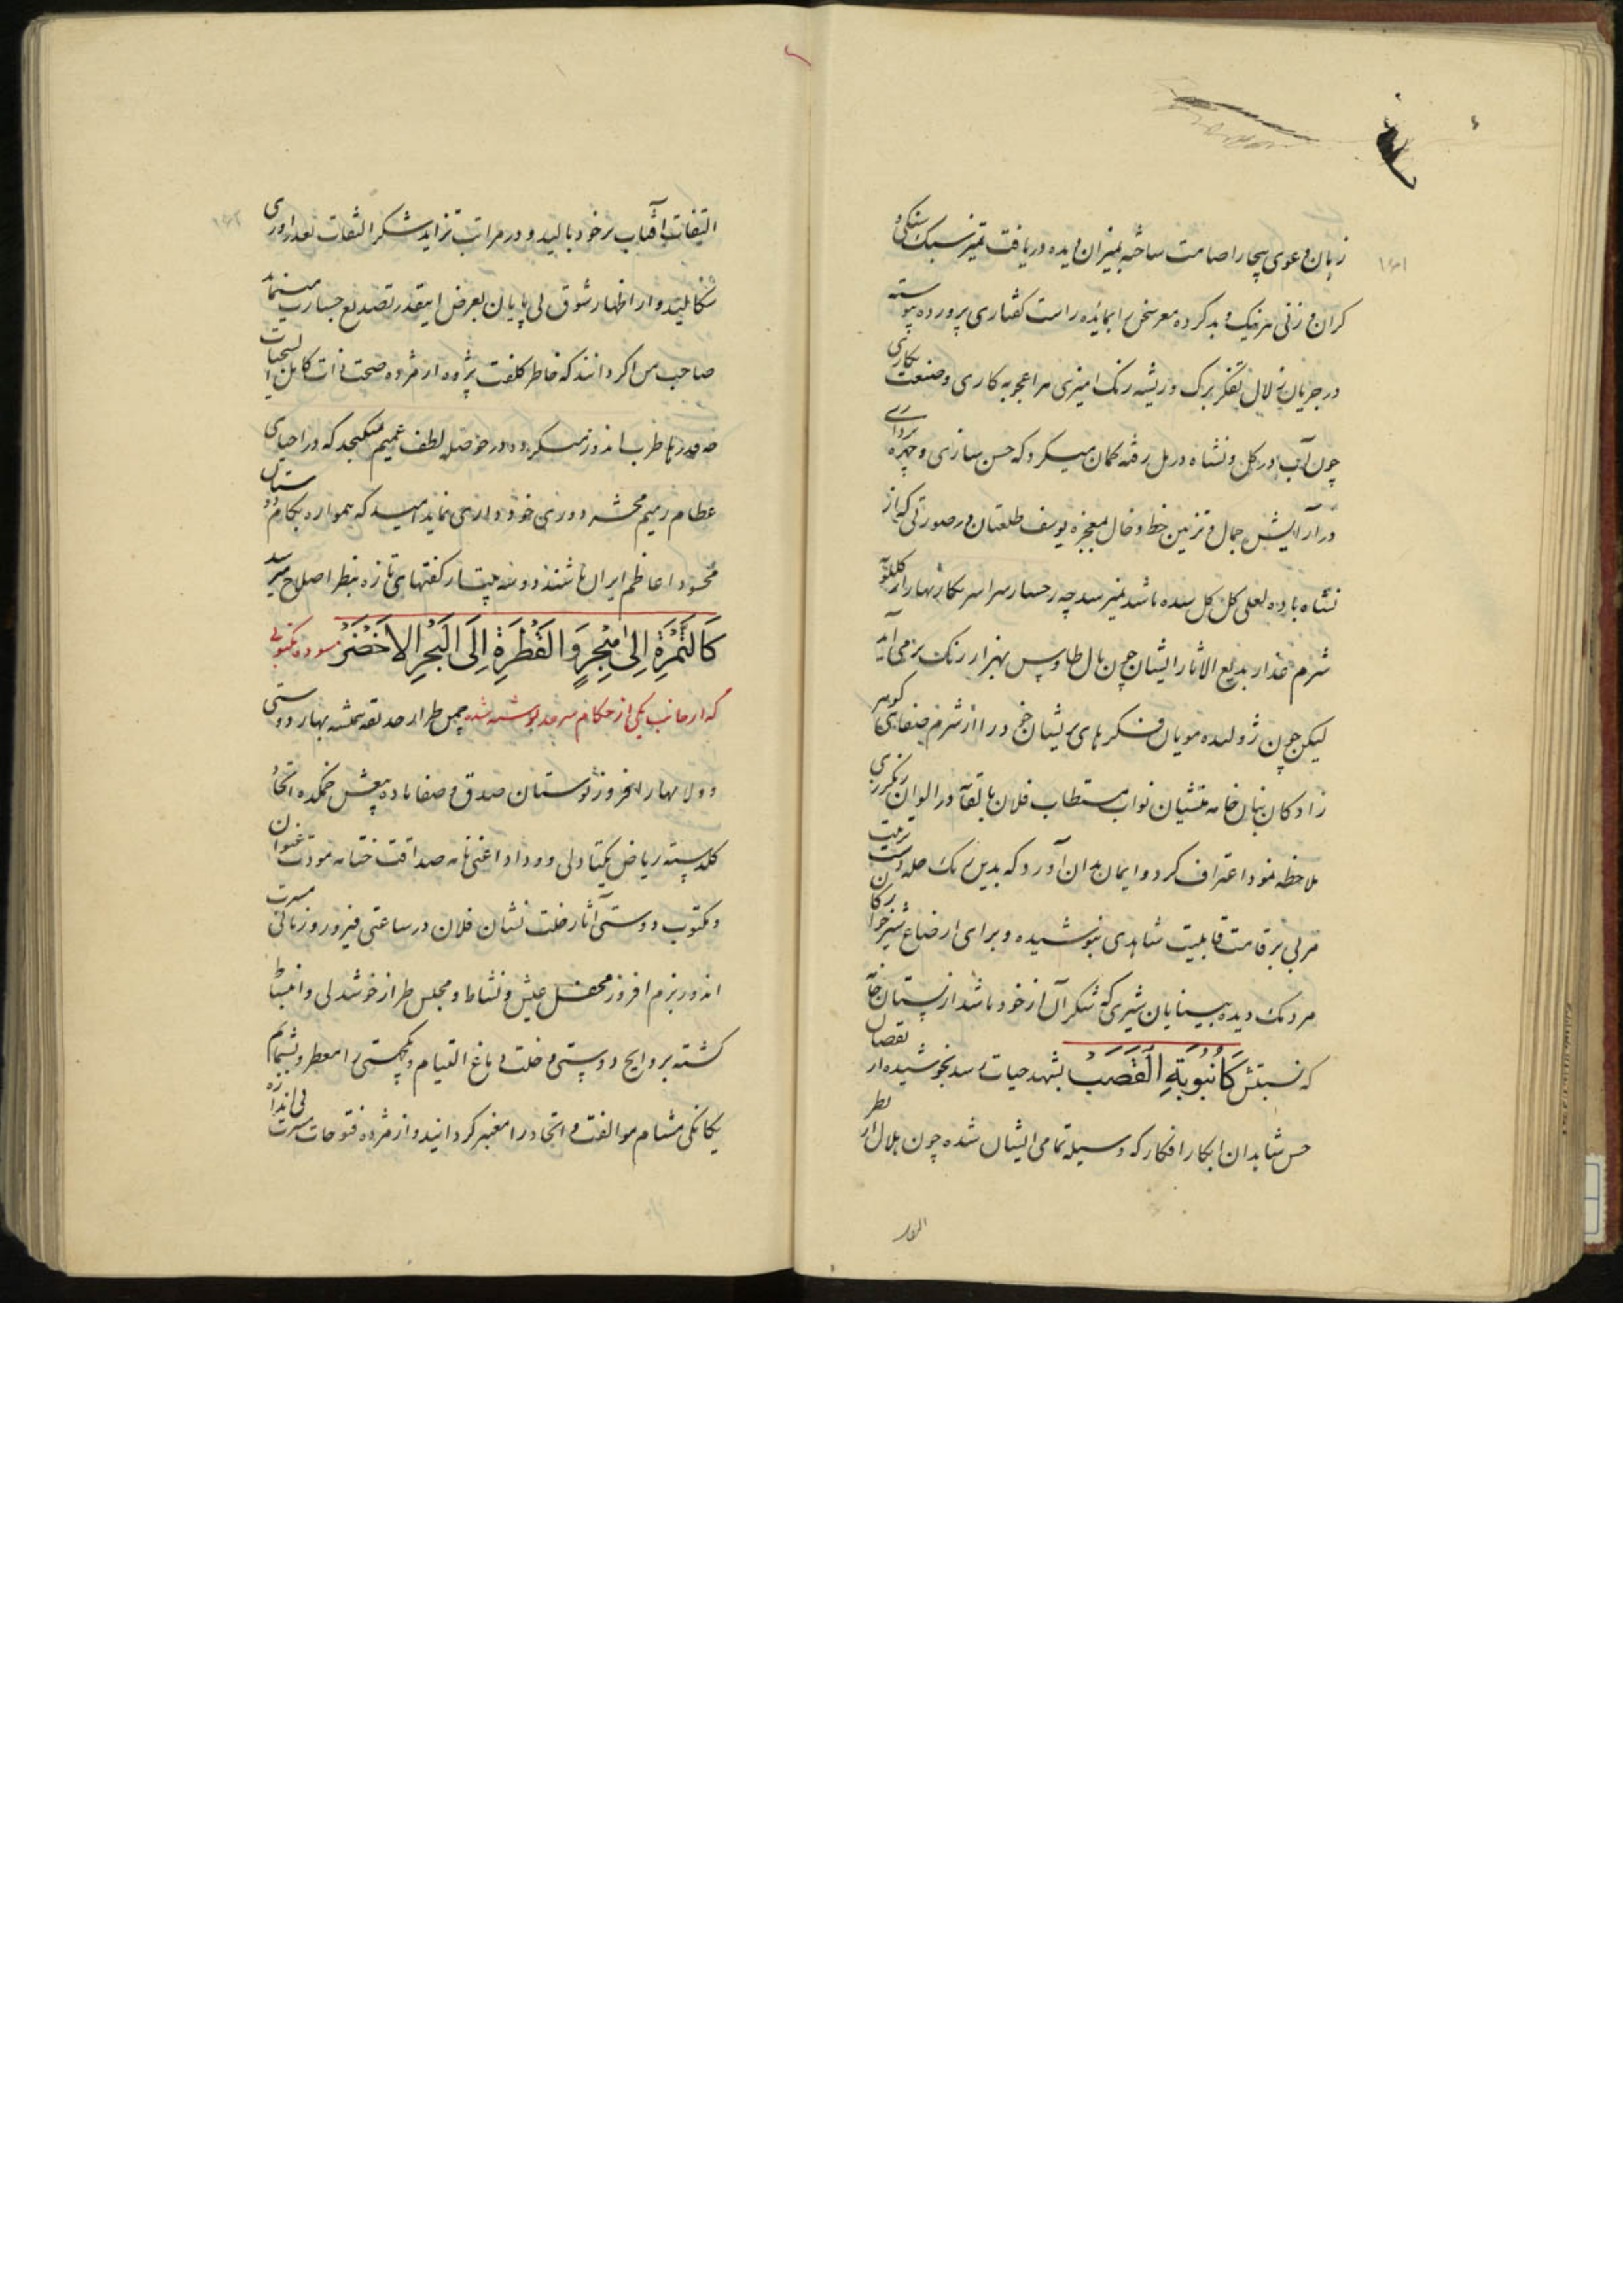 زبان دعوی بیجا را صامت ساخته بمیزان دیده دریافت تمیز سبک سنگی و
کران وزنی هر نیک و بد کرده معرسخن را بمایده راست کفتاری پرورده پیوسته
در جریان زلال تفکر برک و ریشه رنک امیزی هر اعجوبه کاری و صنعت نکاری
چون آب در کل و نشاه در مل رفته کمان میکرد که حسن سازی و چهره پردازی
در آرایش جمال و تزیین خط و خال معجزه یوسف طلعتان در صورتی که از
نشاه باده لعلی کل کل شده باشد نمیرسد چه رخسار سراسر نکار بهار از کلکونه
شرم عذار بدیع الاثار ایشان چون بال طاوس بهزار رنک برمی آید
لیکن چون ژولیده مویان فکرهای پریشان خود را از شرم صفای کوهر
زادکان بنان خامه منشیان نواب مستطاب فلان بالقابه در الوان رنکرزی
ملاحظه نمود اعتراف کرد و ایمان بدان آورد که بدین رنک حله دست تربیت
مربی بر قامت قابلیت شاهدی نپوشیده و برای ارضاع شیرخوارکان
مردمک دیده بینایان شیری که شکر آن از خود باشد از پستان خامه
که نسبتش کَاُنْبُوبَةِ الْقَصَبْ بشهد حیات رسد نجوشیده از نقصان
حسن شاهدان ابکار افکار که وسیله تمامی ایشان شده چون هلال از نظر
التفات آفتاب بر خود بالید و در مراتب تزاید شکر التفات تعداوری
شکالید و از اظهار شوق بی پایان بعرض اینقدر تصدیع جسارت مینماید
صاحب من اکر دانند که خاطر کلفت پژوه از مژده صحت ذات کامل السجیات
چه قدرها طرب اندوز میکردد در حوصله لطف عمیم نمیکنجد که در احیای
عظام رمیم محشر دوری خودداری نماید امید که همواره بکام دوستان
محسود اعاظم ایران باشند دوسه بیت از کفتهای تازه بنظر اصلاح میرسد
کَالتَّمْرَةِ اِلیٰ هَجَرٍ وَالْقَطْرَةِ اِلَی الْبَحْرِ الاَخْضَرْ مسوده مکتوبی
که از جانب یکی از حکام سرحد نوشته شد چمن طراز حدیقه همیشه بهار دوستی
و ولا بهار افروز نوستان صدق و صفا باده بیغش خمکده اتحاد
کلدسته ریاض یکتادلی و وداد اعنی نامه صداقت ختامه مودت عنوان
و مکتوب دوستی آثار خلت نشان فلان در ساعتی فیروز و زمانی مسرت
اندوز بزم افروز محفل عیش و نشاط و مجلس طراز خوشدلی و انبساط
کشته بروایح دوستی و خلت دماغ التیام و یکجهتی را معطر و بشمامم
یکانکی مشام موالفت و اتحاد را معنبر کردانید و از مژده فتوحات مسرت بی اندازه